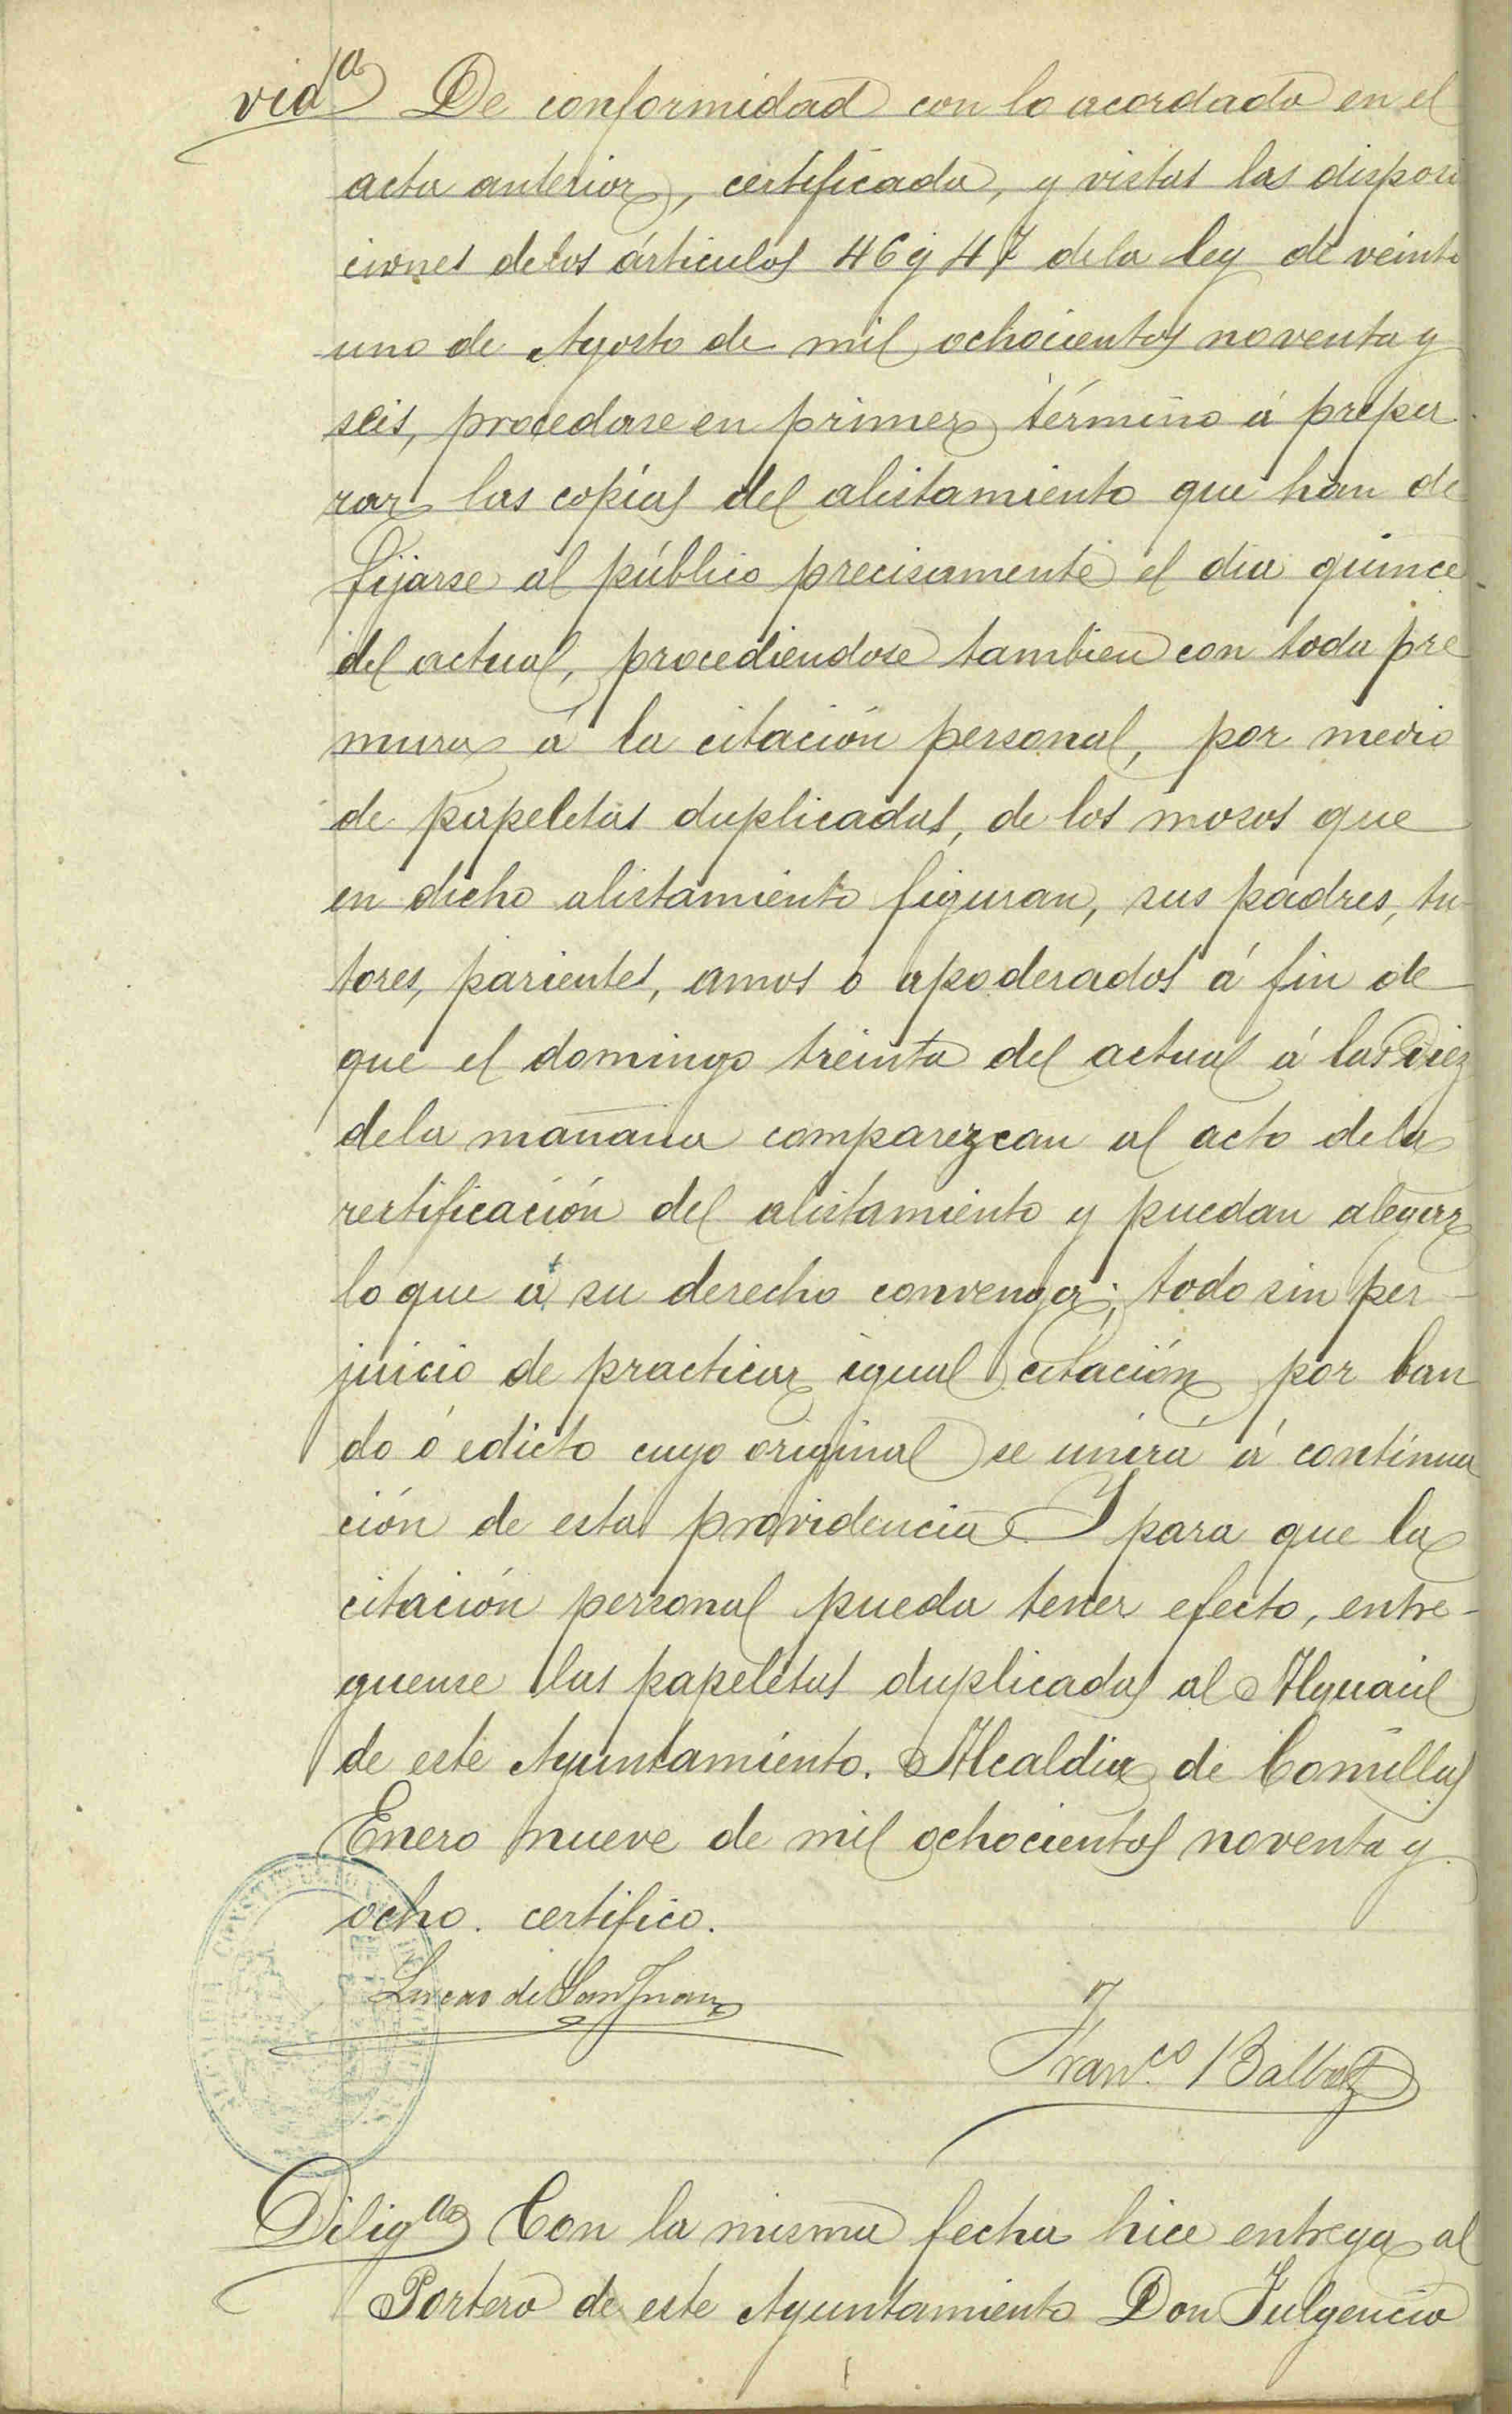 vidª De conformidad con lo acordado en el
acta anterior, certificada, y vistas las disposi
ciones delos ártículos 46 y 47 dela ley de veinte
uno de Agosto de mil ochocientos noventa y
seis, procedase en primer término á prepar
rar las copías del alistamiento que han de
fijarse al público precisamente el dia quince
del actual, procediendose tambien con toda pre
mura á la citación personal, por medio
de papeletas duplicadas, de los mosos que
en dicho alistamiento figuran, sus padres, tu
tores, parientes, amos o apoderados á fin de
que el domingo treinta del actual á las Diez
dela mañana comparezcan al acto dela
rectificación del alistamiento y puedan alegar
lo que á su derecho convenga; todo sin per-
juicio de practicar igual citación por ban
do ó edicto cuyo original se unirá á continua
ción de esta providencia Y para que la
citación personal pueda tener efecto, entre-
guense las papeletas duplicadas al Alguacil
de este Ayuntamiento. Alcaldia de Comillas
Enero nueve de mil ochocientos noventa y
ocho. certifico.
Lucas de San Juan
Franco. Balbas
Diligª Con la misma fecha hice entrega al
Portero de este Ayuntamiento Don Fulgencio